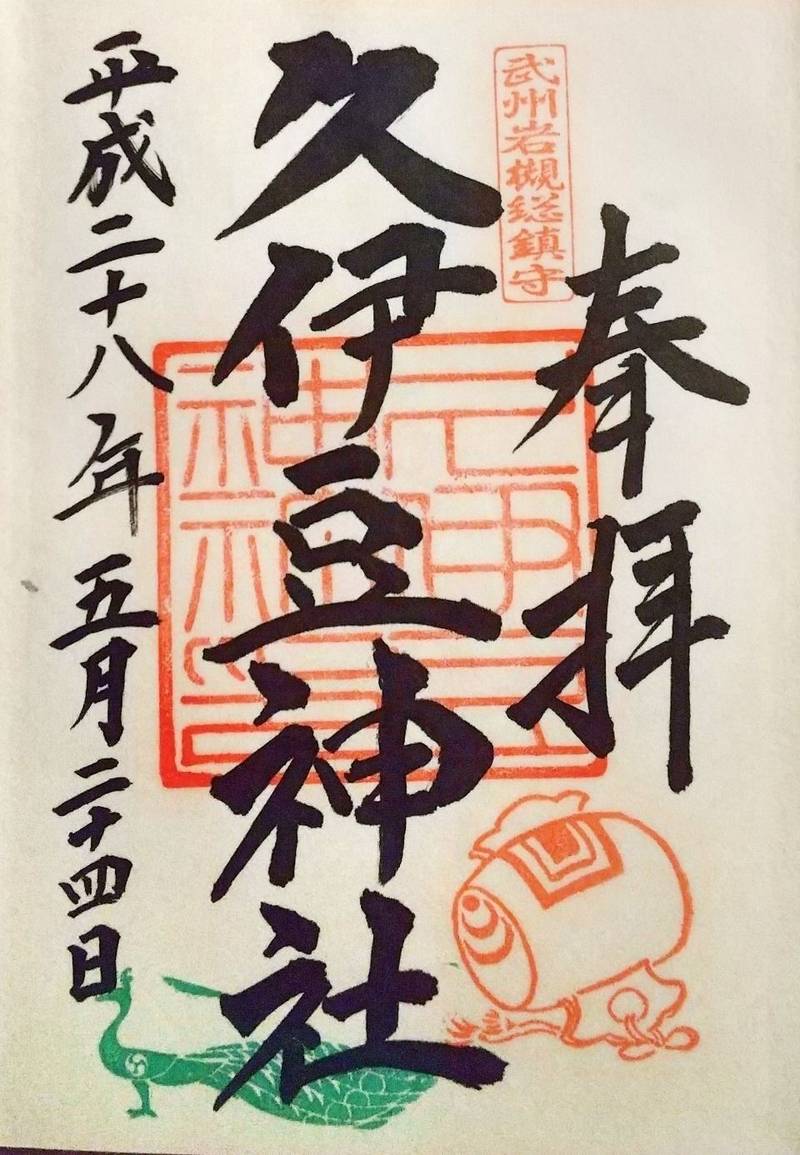 奉拝
武州岩槻総鎮守
久伊豆神社
平成二十八年五月二十四日